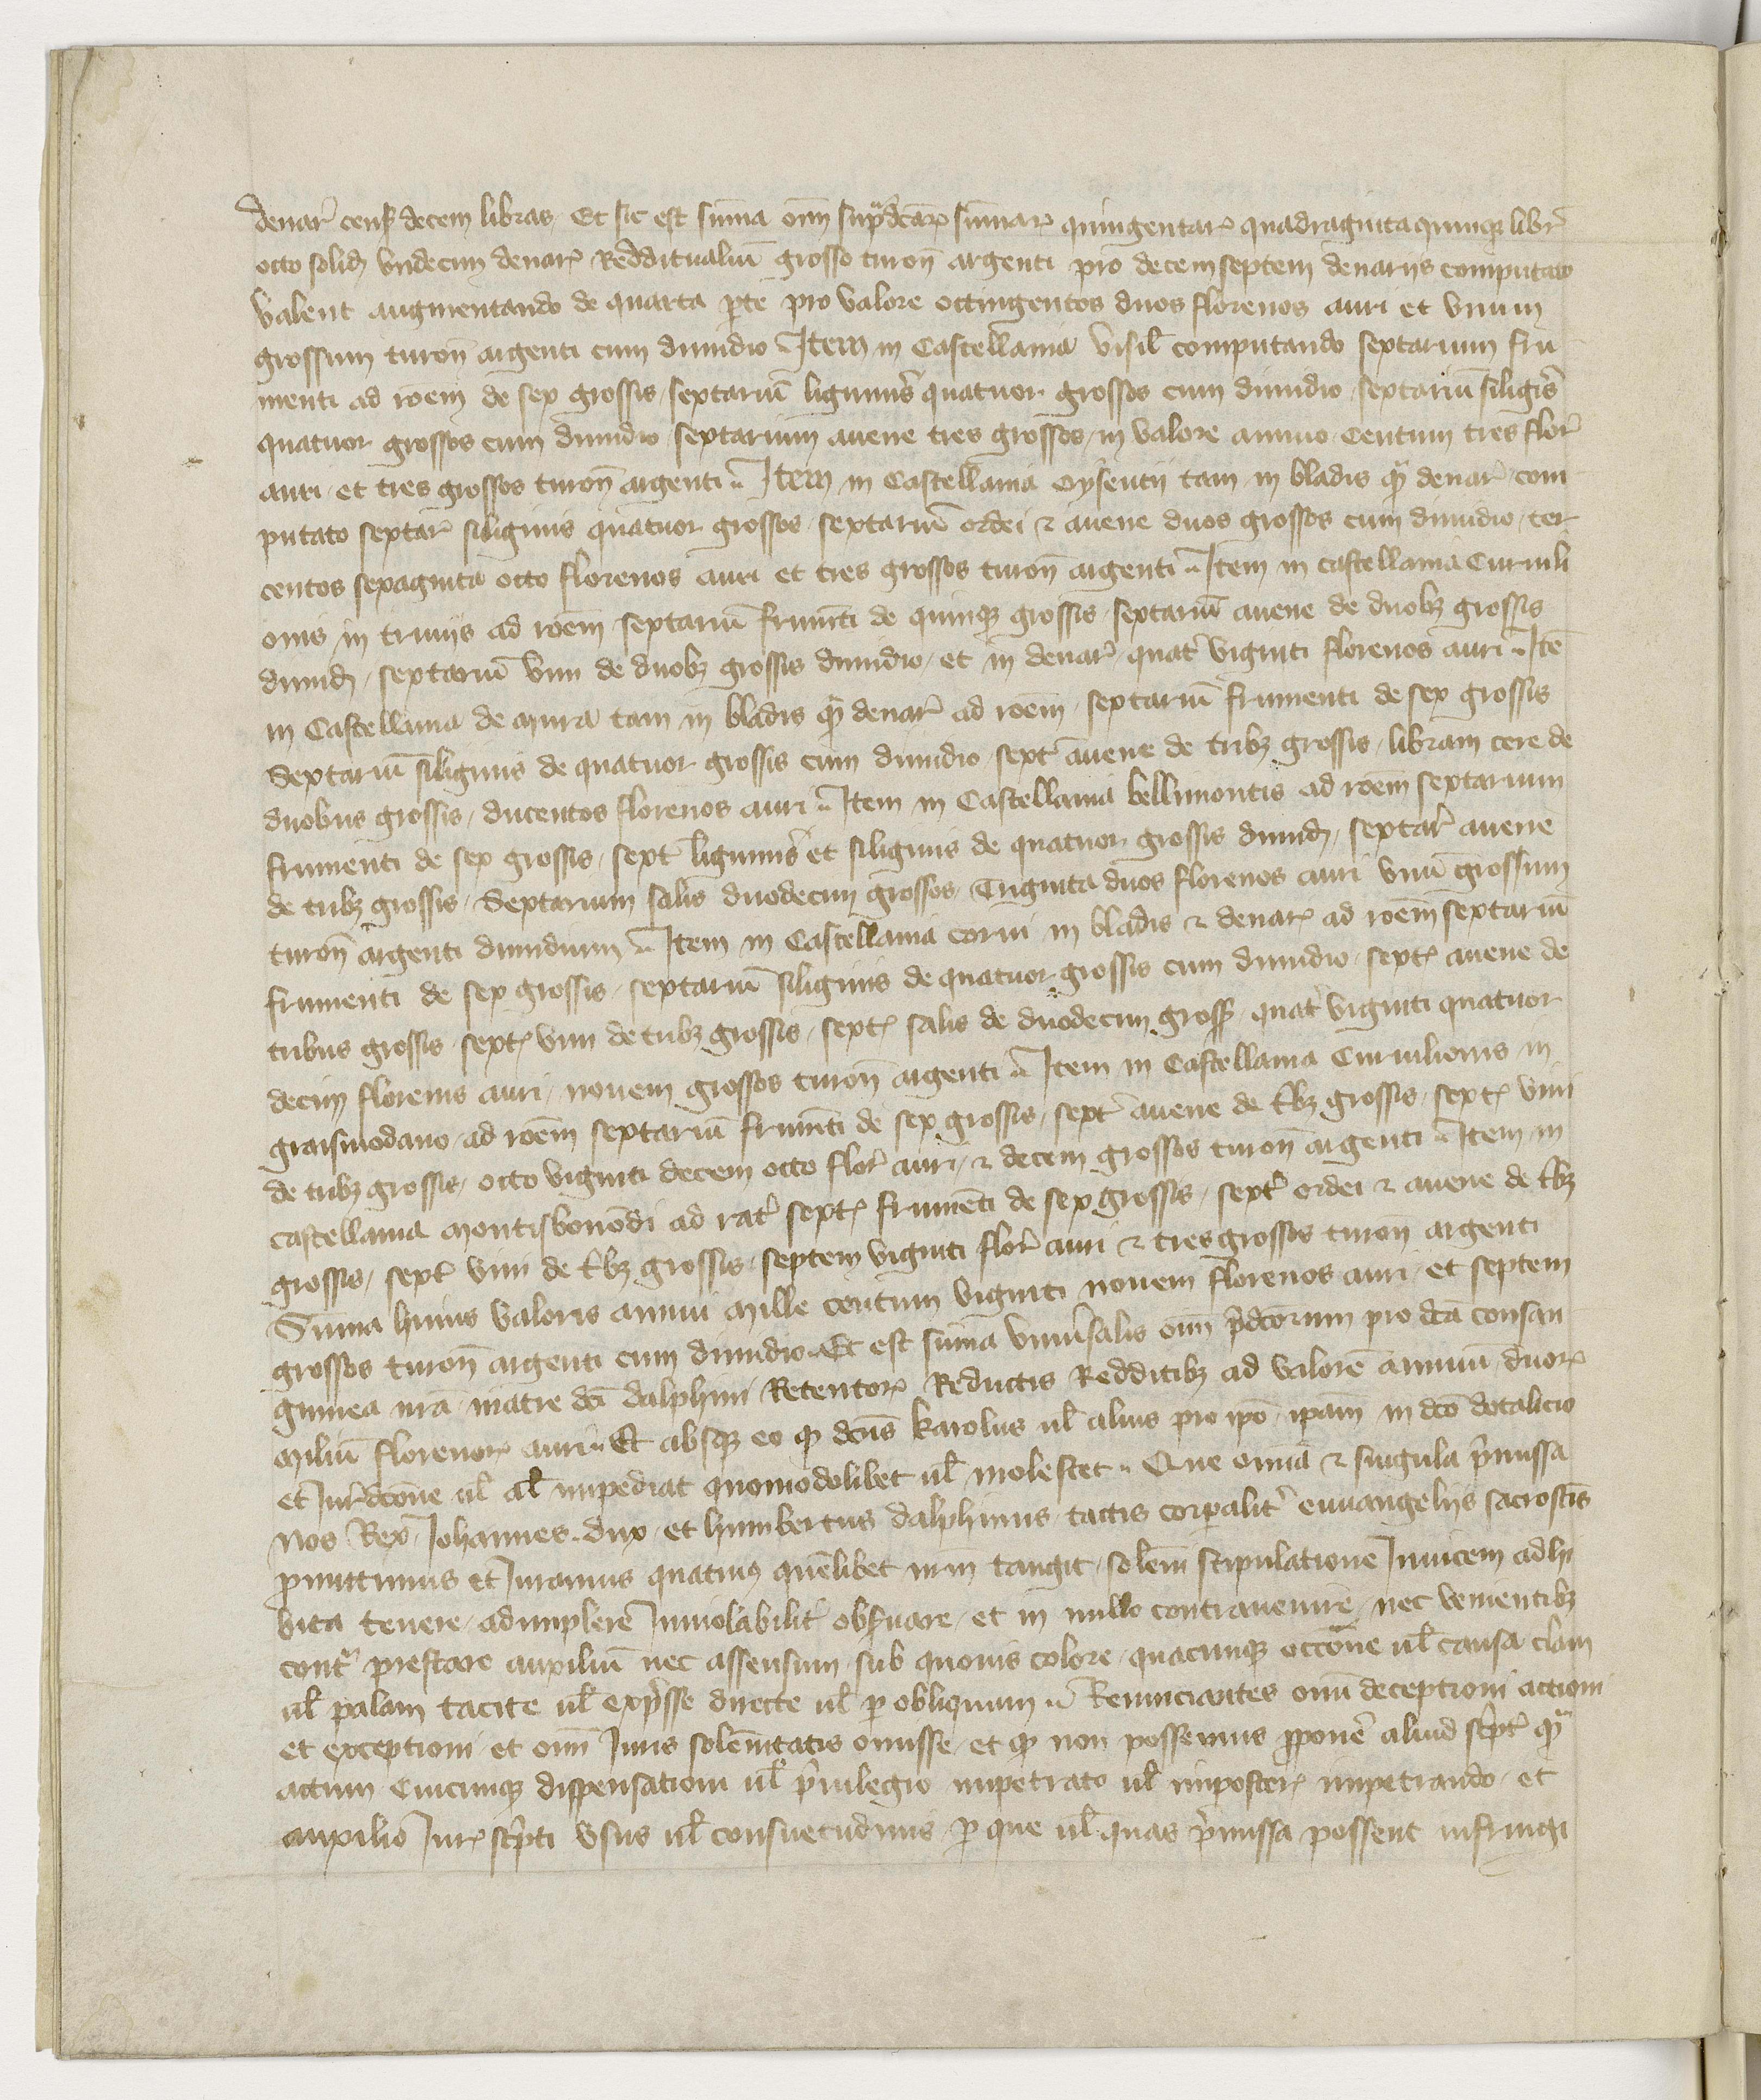 denar̃ cens decem libras, Et sic est sum̃a om̃i sup̃dc̃aꝝ sum̃aꝝ quingentaꝝ quadraginta quinqꝫ libr̃
octo solid̃ undecim denaꝝ Redditualiũ grosso turoñ argenti pro decemseptem denariis computato
valent augmentando de quarta p̃te pro valore octingentos duos florenos auri et unum
grossum turoñ argenti cum dimidio Item in Castellania Visil̃ computando sextarium fru
menti ad rõem de sex grossis, sextariũ liguminis̃ quatuor grossos cum dimidio sextariũ siligĩs
quatuor grossos cum dimidio, sextarium avene tres grossos, in valore annuo Centum tres flor̃
auri, et tres grossos turoñ argenti Item in Castellania Oysentii tam in bladis q̃ denar̃ com
putato sextar̃ siliginis quatuor grossos, sextariũ ordei ⁊ avene duos grossos cum dimidio, ter
centos sexaginta octo florenos auri et tres grossos turoñ argenti Item in castellania Curvili
onis in triviis ad rõem sextariũ frum̃ti de quinqꝫ grossis, sextariũ avene de duobꝫ grossis
dimid̃, sextariũ vini de duobꝫ grossis dimidio, et in denar̃, quat̃ viginti florenos auri Itẽ
in Castellania de Mura tam in bladis q̃ denar̃ ad rõem, sextariũ frumenti de sex grossis
Sextariũ siliginis de quatuor grossis cum dimidio, sext̃ avene de tribꝫ grossis, libram cere de
duobus grossis, ducentos florenos auri Item in Castellania bellimontis ad rõem sextarium
frumenti de sex grossis, sext̃ liguminis̃ et siliginis de quatuor grossis dimid̃, sextar̃ avene
de tribꝫ grossis, Sextarium salis duodecim grossos, Triginta duos florenos auri unũ grossum
turoñ argenti dimidium Item in Castellania corvi in bladis ⁊ denaꝝ ad rõem sextariũ
frumenti de sex grossis, sextariũ siliginis de quatuor grossis cum dimidio, sextꝝ avene de
tribus grossis, sextꝝ vini de tribꝫ grossis, sextꝝ salis de duodecim gross̃, quat̃ viginti quatuor
decim florenis auri, novem grossos turoñ argenti Item in Castellania Curvilionis in
graisivodano, ad rõem sextariũ frum̃ti de sex grossis, sext̃ avene de t̃bꝫ grossis, sextꝝ vini
de tribꝫ grossis, octo viginti decem octo flor̃ auri, ⁊ decem grossos turoñ argenti Item in
castellania Montisbonõdi ad rat̃ sextꝝ frumẽti de sex grossis, sext̃ ordei ⁊ avene de t̃bꝫ
grossis, sext̃ vini de t̃bꝫ grossis, septem viginti flor̃ auri ⁊ tres grossos turoñ argenti
Sum̃a huius valoris annui Mille centum viginti novem florenos auri, et septem
grossos turoñ argenti cum dimidio. Et est sum̃a uniṽsalis om̃i p̃dc̃orum pro dc̃a consan
guinea nr̃a, matre dc̃i dalphini Retentoꝝ Reductis Redditibꝫ ad valorẽ annuũ, duoꝝ
Miliũ florenoꝝ auri Et absqꝫ eo qꝫ dc̃us karolus ul̃ alius pro ip̃o, ip̃am in dc̃o dotalicio
et Jur̃dc̃one ul̃ al̃ impediat quomodolibet ul̃ molestet. Que om̃ia ⁊ singula p̃missa
Nos Rex, Johannes dux, et humbertus dalphinus, tactis corporalit̃ euuangeliis sacrosc̃is
promittimus et Juramus quatinus quẽlibet nr̃m tangit, solem̃i stipulatione Invicem adhi
bita tenere, adimplere Inviolabilit̃ obs̃vare, et in nullo contravenire, nec venientibꝫ
cont̃ prestare auxiliũ nec assensum, sub quovis colore, quacunqꝫ occ̃one ul̃ causa clam
ul̃ palam tacite ul̃ exp̃sse directe ul̃ p obliquum Renunciantes om̃i deceptioni actioni
et exceptioni, et om̃i Juris solem̃itatis omisse, et qꝫ non possemus p̃ponẽ aliud sc̃pt̃ q̃
actum Cuicunqꝫ dispensationi ul̃ p̃vilegio impetrato ul̃ imposteꝝ impetrando, et
auxilio Jurꝝ sc̃pti Usus ul̃ consuetudinis, p que ul̃ quas p̃missa possent infringi